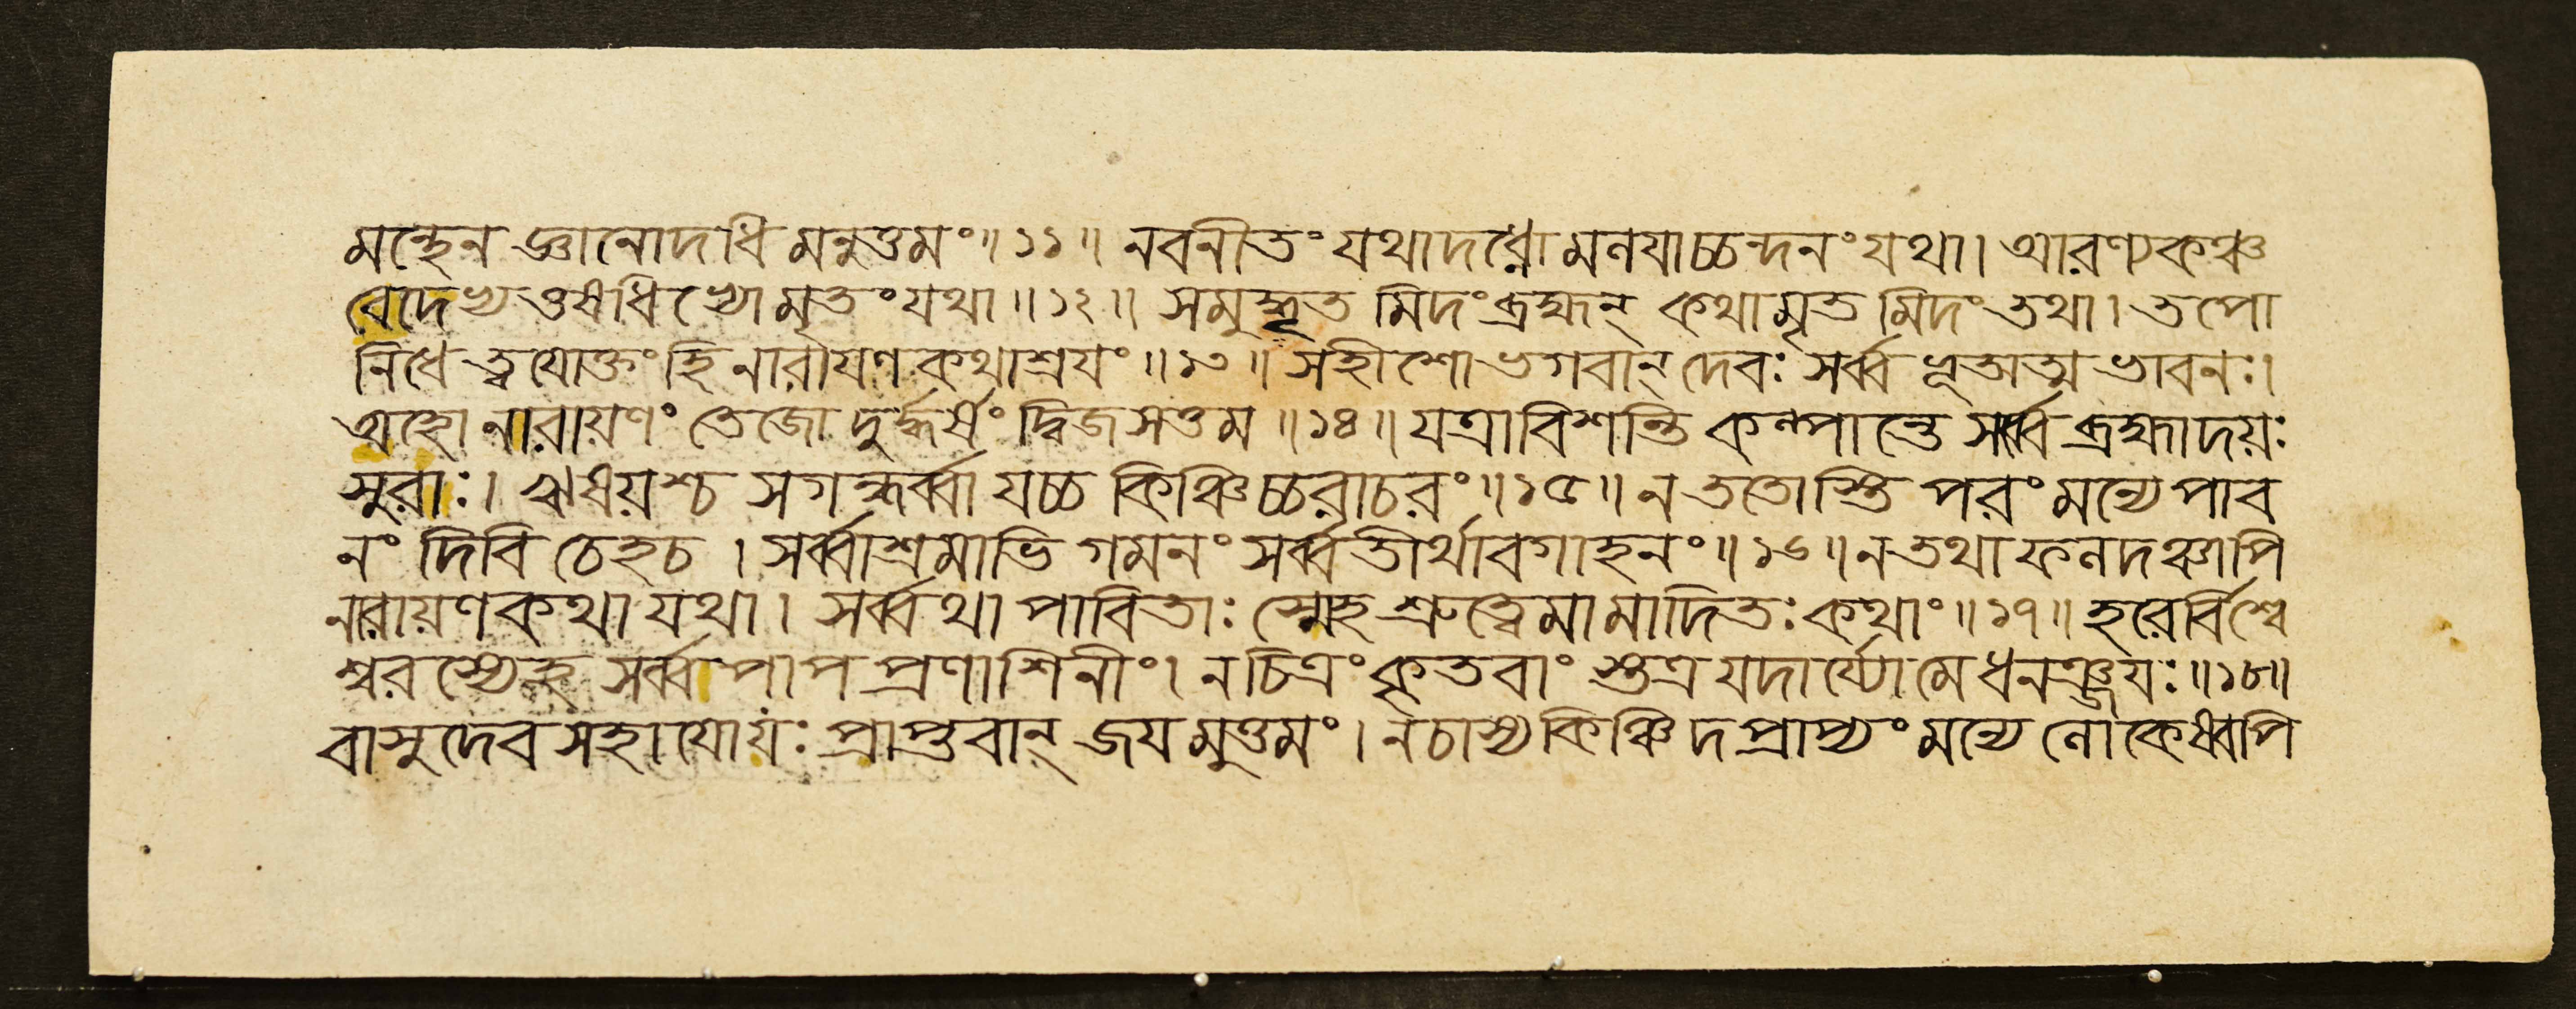 মন্থেন জ্ঞানোদধি মনুত্তমং॥ ১১॥ নবনীতং যথাদধ্নো মলযাচ্চন্দনং যথা। আরণ্যকঞ্চ
বেদেভ্য ওষধিভ্যো মৃতং যথা॥ ১২॥ সমুদ্ধৃত মিদং ব্রহ্মন্ কথামৃত মিদং তথা। তপো
নিধে ত্বযোক্তং হি নারাযণ কথাশ্রযং॥ ১৩॥ সহীশো ভগবান্ দেবঃ সর্ব্ব ভূতাত্ম ভাবনঃ।
অহো নারায়ণং তেজো দুর্দ্ধর্ষং দ্বিজসত্তম॥ ১৪॥ যত্রাবিশন্তি কল্পান্তে সর্ব্ব ব্রহ্মাদয়ঃ
সুরাঃ। ঋষয়শ্চ সগন্ধর্ব্বা যচ্চ কিঞ্চিচ্চরাচরং॥ ১৫॥ ন ততোস্তি পরং মন্যে পাব
নং দিবি চেহচ। সর্ব্বাশ্রমাভি গমনং সর্ব্বতীর্থাবগাহনং॥ ১৬॥ ন তথা ফলদঞ্চাপি
নারায়ণকথা যথা। সর্ব্বথা পাবিতাঃ স্মেহ শ্রুত্বেমামাদিতঃ কথাং॥ ১৭॥ হরের্বিশ্বে
শ্বরস্যেহ সর্ব্বপাপ প্রণাশিনীং। নচিত্রং কৃতবাং স্তত্র যদার্য্যোমে ধনঞ্জযঃ॥ ১৮॥
বাসুদেব সহাযোযং প্রাপ্তবান্ জযমুত্তমং। নচাস্য কিঞ্চিদপ্রাপ্যং মন্যে লোকেষ্বপি